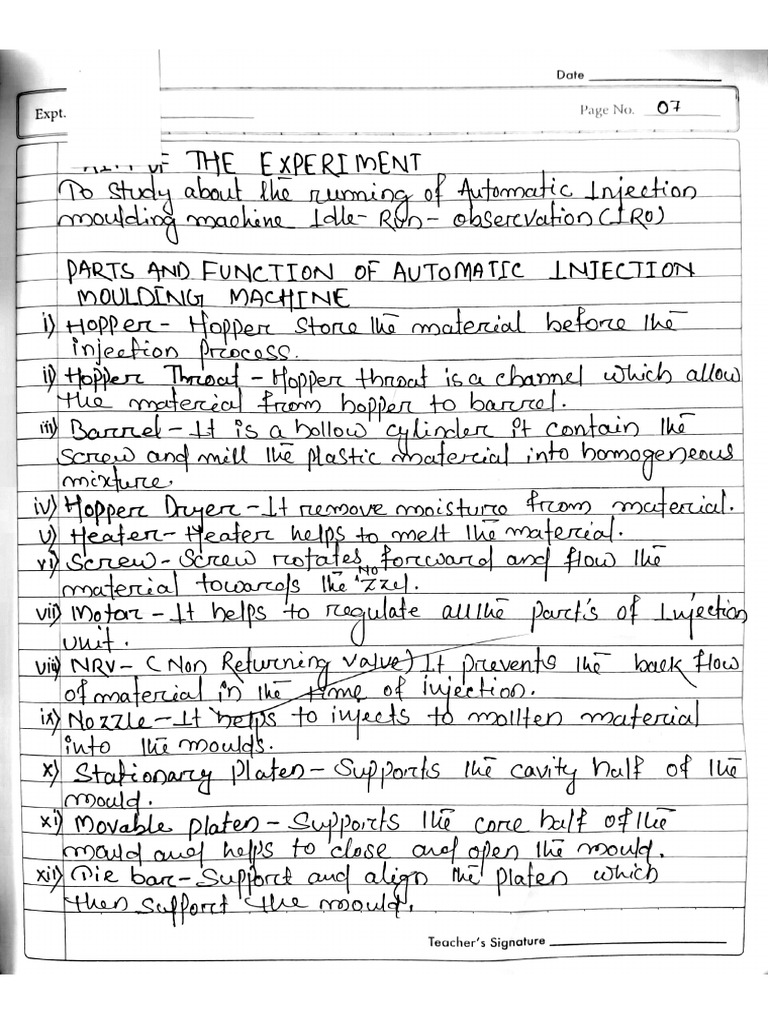 Date
Expt.
Page No. 07
OF THE EXPERIMENT
To study about the running of Automatic Injection
moulding machine Idle-Run-observation (IRO)
PARTS AND FUNCTION OF AUTOMATIC INJECTION
MOULDING MACHINE
i) Hopper - Hopper store the material before the
injection process.
ii) Hopper Throat - Hopper throat is a channel which allow
the material from hopper to barrel.
iii) Barrel - It is a hollow cylinder it contain the
screw and mill the plastic material into homogeneous
mixture.
iv) Hopper Dryer - It remove moisture from material.
v) Heater - Heater helps to melt the material.
vi) Screw - Screw rotates forward and flow the
material towards the Nozzel.
vii) Motor - It helps to regulate all the part's of Injection
unit.
viii) NRV - (Non Returning value) It prevents the back flow
of material in the time of injection.
ix) Nozzle - It helps to injects to mollten material
into the moulds.
x) Stationary Platen - Supports the cavity half of the
mould.
xi) Movable platen - Supports the core half of the
mould and helps to close and open the mould.
xii) Tie bar - Support and align the platen which
then support the mould.
Teacher's Signature